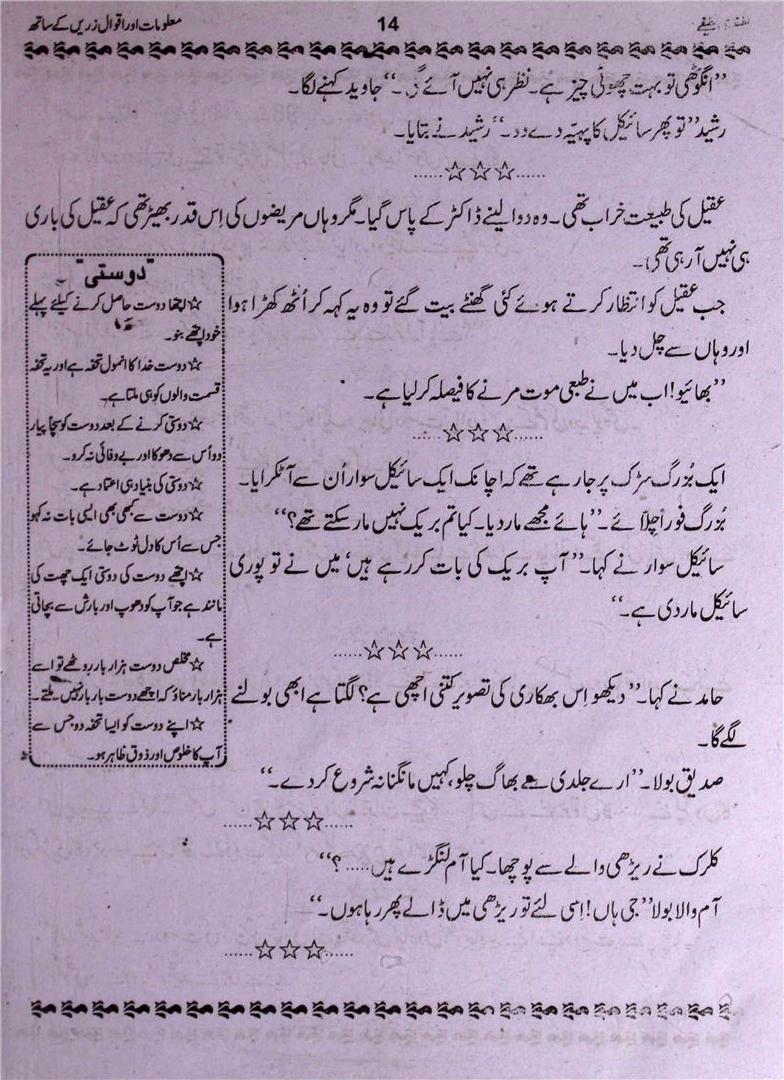 معلومات اور اقوال زریں کے ساتھ
14
لطیفے
’’انگوٹھی تو بہت چھوٹی چیز ہے۔ نظر ہی نہیں آئے گی۔‘‘ جاوید کہنے لگا۔
رشید ’’تو پھر سائیکل کا پہیّہ دے دو۔‘‘ رشید نے بتایا۔
......☆☆☆......
عقیل کی طبیعت خراب تھی۔ وہ دوا لینے ڈاکٹر کے پاس گیا۔ مگر وہاں مریضوں کی اِس قدر بھیڑ تھی کہ عقیل کی باری
ہی نہیں آ رہی تھی۔
جب عقیل کو انتظار کرتے ہوئے کئی گھنٹے بیت گئے تو وہ یہ کہہ کر اُٹھ کھڑا ہوا
اور وہاں سے چل دیا۔
’’بھائیو! اب میں نے طبعی موت مرنے کا فیصلہ کر لیا ہے۔
......☆☆☆......
ایک بُزرگ سڑک پر جا رہے تھے کہ اچانک ایک سائیکل سوار اُن سے آ ٹکرایا۔
بُزرگ فوراً چلاّئے۔ ’’ہائے مجھے مار دیا۔ کیا تم بریک نہیں مار سکتے تھے؟‘‘
سائیکل سوار نے کہا۔ ’’آپ بریک کی بات کر رہے ہیں‘ میں نے تو پوری
سائیکل مار دی ہے۔‘‘
......☆☆☆......
حامد نے کہا۔ ’’دیکھو اِس بھکاری کی تصویر کتنی اچھی ہے؟ لگتا ہے ابھی بولنے
لگے گا۔
صدیق بولا۔ ’’ارے جلدی سے بھاگ چلو، کہیں مانگنا نہ شروع کر دے۔‘‘
......☆☆☆......
کلرک نے ریڑھی والے سے پوچھا۔ کیا آم لنگڑے ہیں ..... ؟‘‘
آم والا بولا ’’جی ہاں! اِسی لئے تو ریڑھی میں ڈالے پھر رہا ہوں۔‘‘
......☆☆☆......
"دوستی"
☆ اچھا دوست حاصل کرنے کیلئے پہلے
خود اچھے بنو۔
☆ دوست خدا کا انمول تحفہ ہے اور یہ تحفہ
قسمت والوں کو ہی ملتا ہے۔
☆ دوستی کرنے کے بعد دوست کو سچّا پیار
دو اُس سے دھوکا اور بے وفائی نہ کرو۔
☆ دوستی کی بنیاد ہی اعتماد ہے۔
☆ دوست سے کبھی بھی ایسی بات نہ کہو
جس سے اُس کا دل ٹوٹ جائے۔
☆ اچھے دوست کی دوستی ایک چھت کی
مانند ہے جو آپ کو دھوپ اور بارش سے بچاتی
ہے۔
☆ مخلص دوست ہزار بار روٹھے تو اسے
ہزار بار مناؤ کہ اچھے دوست بار بار نہیں ملتے۔
☆ اپنے دوست کو ایسا تحفہ دو جس سے
آپ کا خلوص اور ذوق ظاہر ہو۔